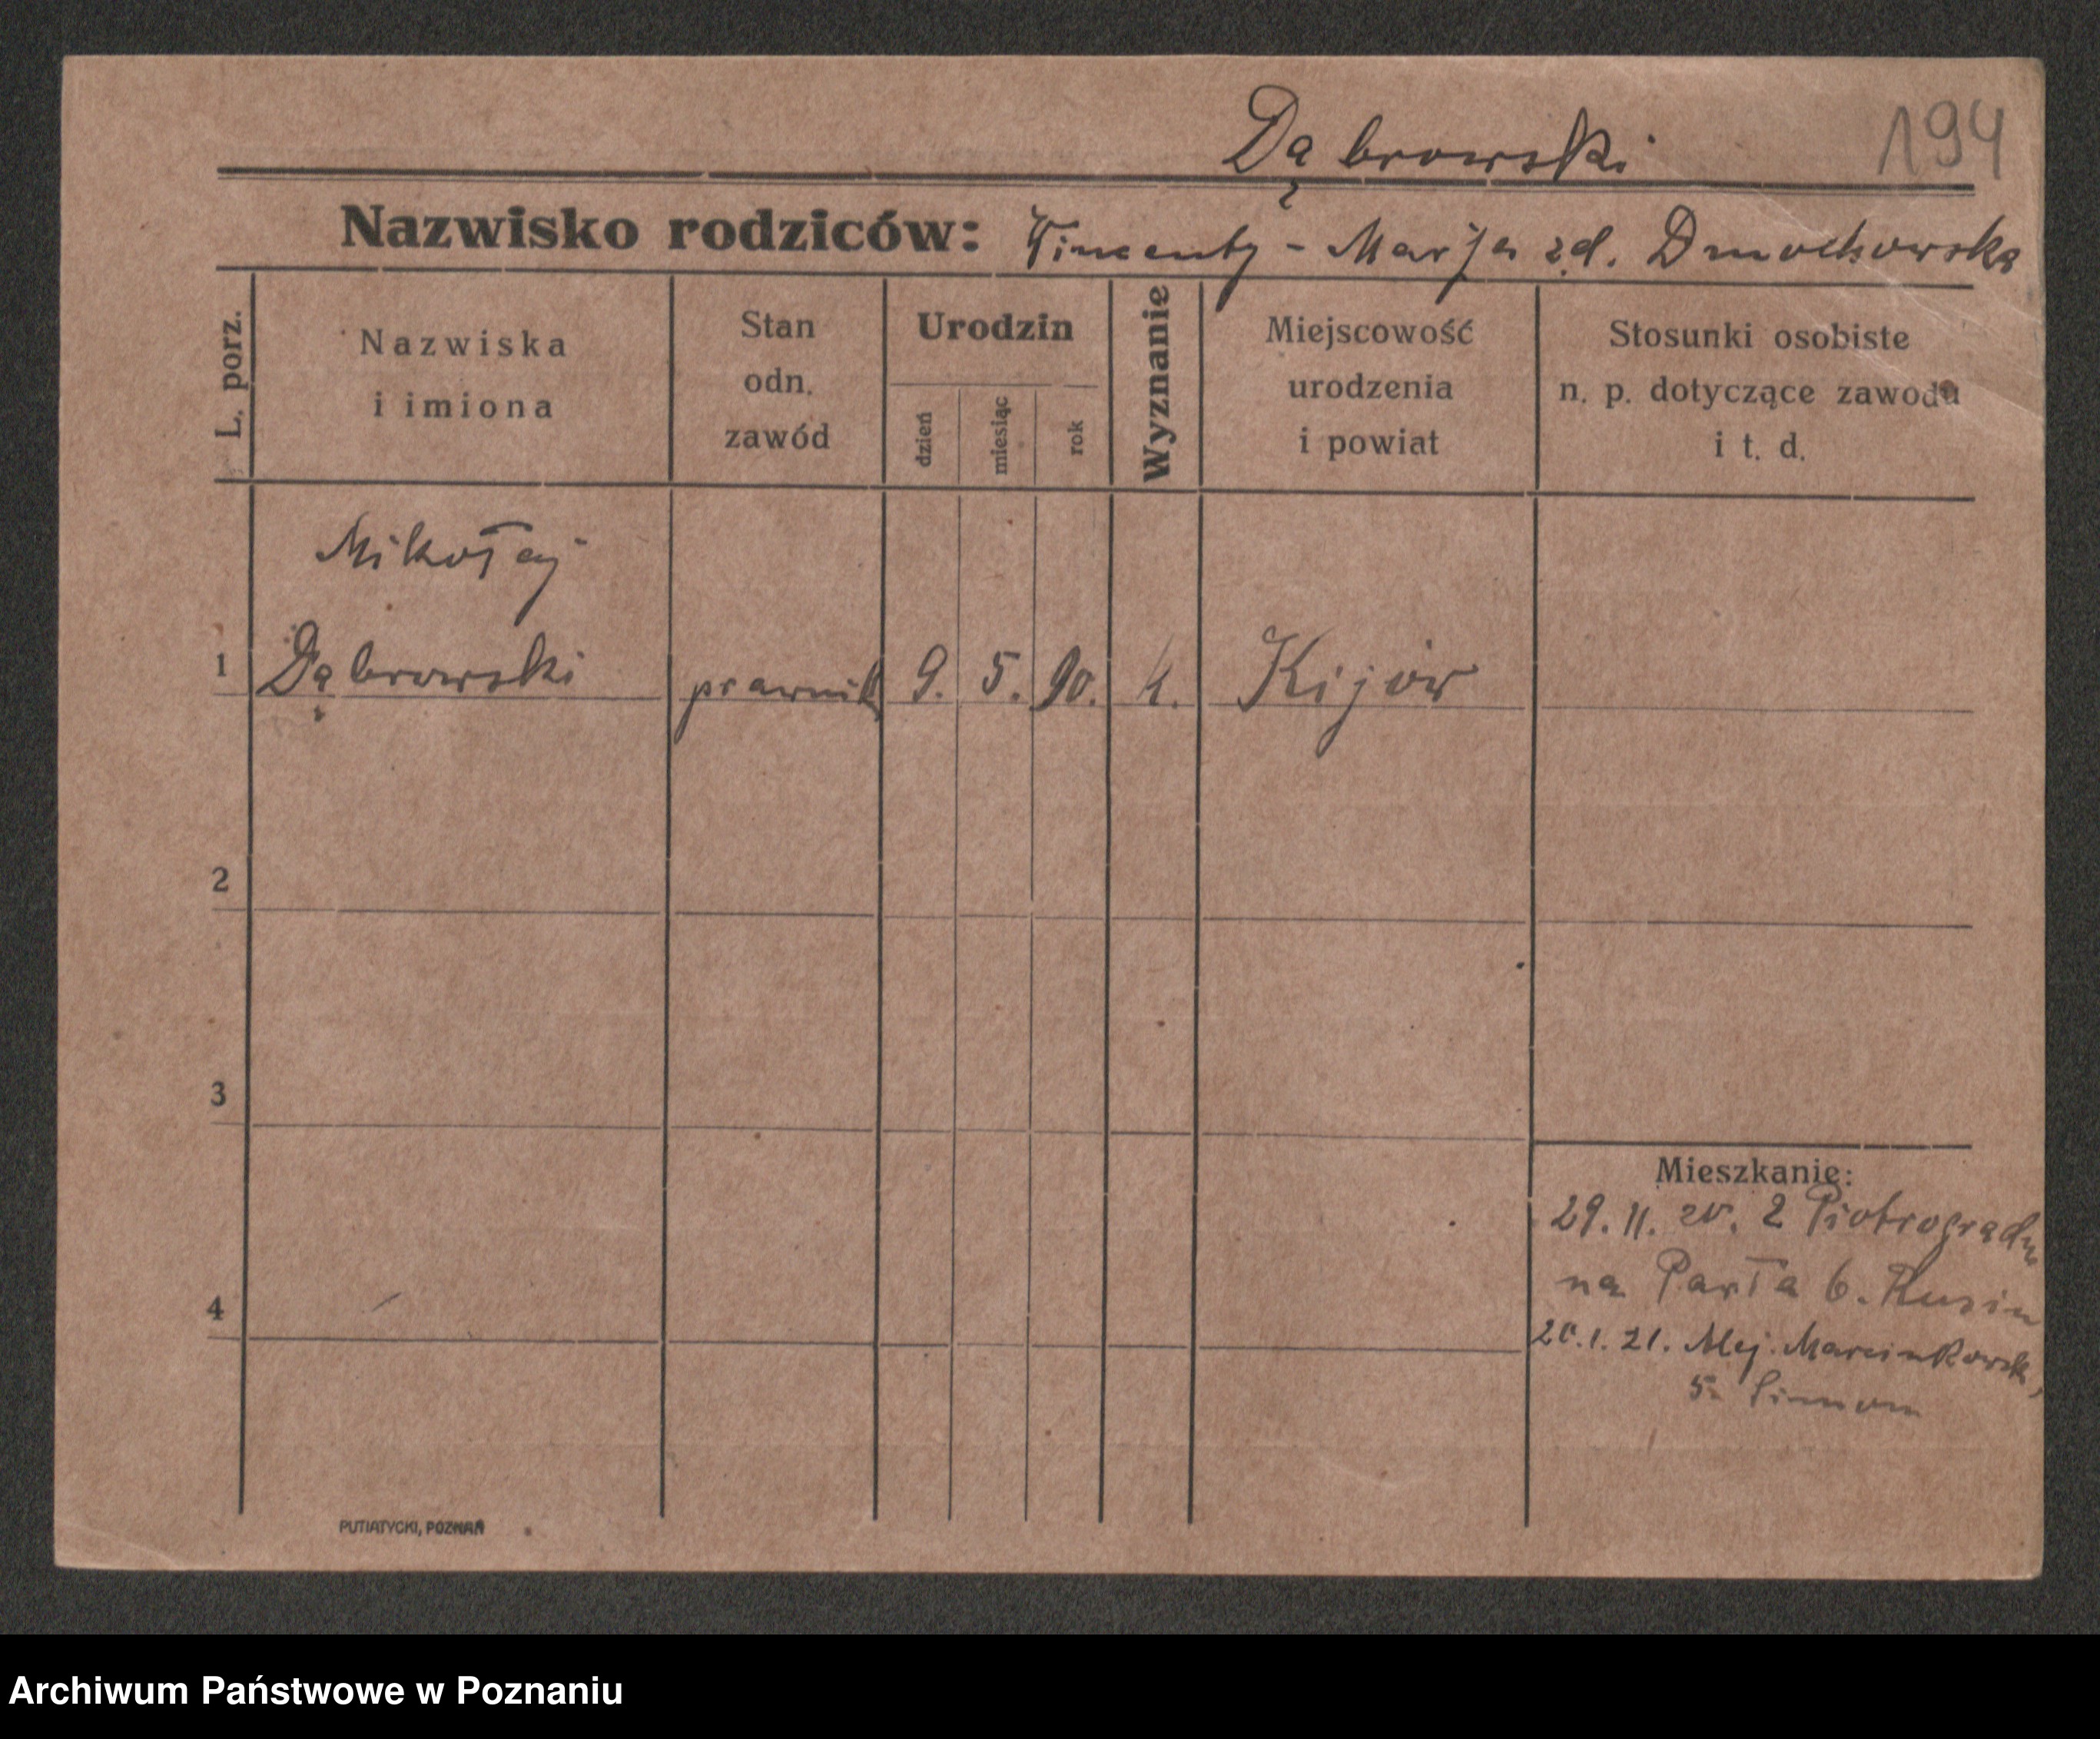 Dąbrowski 194
Nazwisko rodziców: Wincenty - Marja zd. Dmochowska
L. porz.
Nazwiska
i imiona
Stan
odn.
zawód
Urodzin
dzień
miesiąc
rok
Wyznanie
Miejscowość
urodzenia
i powiat
Stosunki osobiste
n. p. dotyczące zawodu
i t. d.
Mikołaj
1 Dąbrowski prawnik 9. 5. 90. k. Kijów
2
3
4
Mieszkanie:
29. 11. 20. z Piotrogradu
na 6.
20. 1. 21. Alej. Marcinkowsk.
5
PUTIATYCKI, POZNAŃ
Archiwum Państwowe w Poznaniu